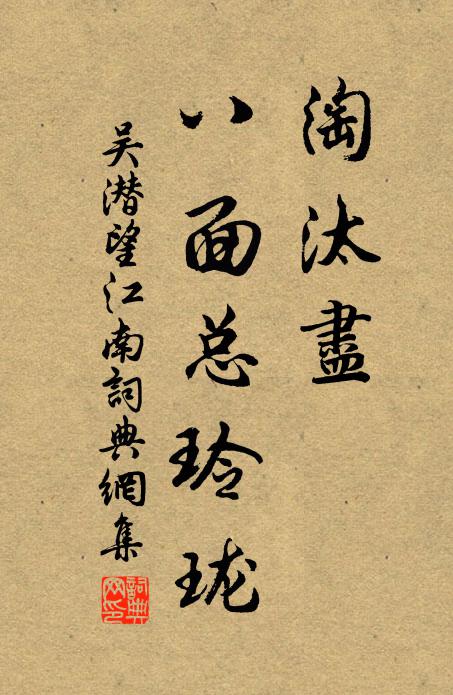 淘汰盡
八面总玲珑
吴潜望江南詞典網集
詞典网印